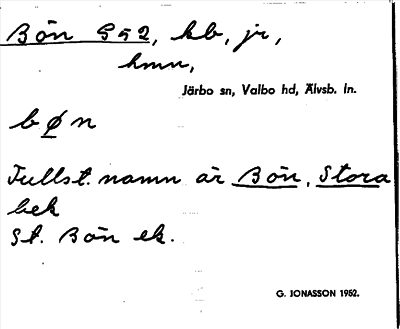 Bön § 52, kb, jr,
hmn,
Järbo sn, Valbo hd, Älvsb. ln.
bøn
Fullst. namn är Bön, Stora
bek
St. Bön ek.
G. JONASSON 1952.